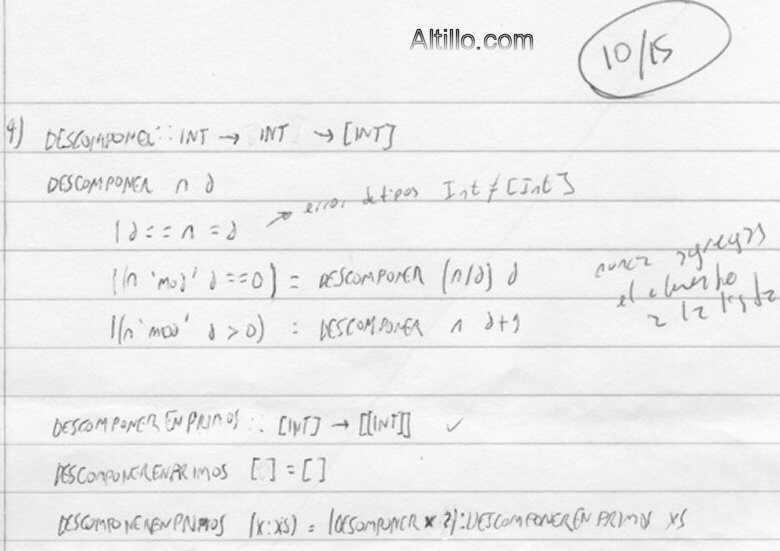 Altillo.com
10/15
4) DESCOMPONER :: INT → INT → [INT]
DESCOMPONER n d
error de tipos Int ≠ [Int]
|d == n = d
|(n `MOD` d == 0) = DESCOMPONER (n/d) d
|(n `MOD` d > 0) = DESCOMPONER n d+1
nunca agregas
el elemento
a la lista
DESCOMPONERENPRIMOS :: [INT] → [[INT]] ✓
DESCOMPONERENPRIMOS [] = []
DESCOMPONERENPRIMOS (x:xs) = (DESCOMPONER x 2):DESCOMPONERENPRIMOS xs